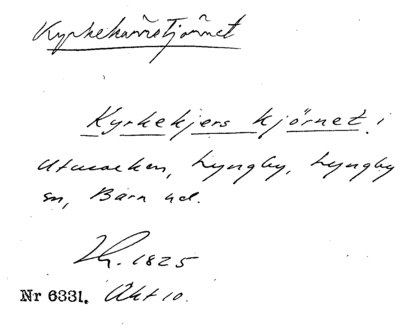 Kyrkekärrstjärnet
Kyrkekjers kjörnet i
Utmarken, Lyngby, Lyngby
sn, Bära hd.
Lh. 1825
Nr 6331. Akt 10.